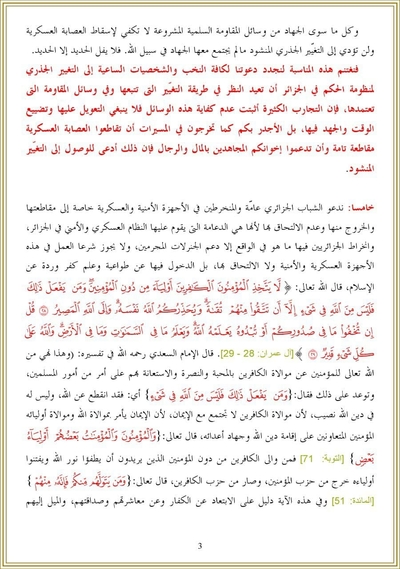 وكل ما سوى الجهاد من وسائل المقاومة السلمية المشروعة لا تكفي لإسقاط العصابة العسكرية
ولن تؤدي إلى التغيير الجذري المنشود ما لم يجتمع معها الجهاد في سبيل الله. فلا يفل الحديد إلا الحديد.
فنغتنم هذه المناسبة لنجدد دعوتنا لكافة النخب والشخصيات الساعية إلى التغيير الجذري
لمنظومة الحكم في الجزائر أن تعيد النظر في طريقة التغيير التي تتبعها وفي وسائل المقاومة التي
تعتمدها، فإن التجارب الكثيرة أثبتت عدم كفاية هذه الوسائل فلا ينبغي التعويل عليها وتضييع
الوقت والجهد فيها، بل الأجدر بكم كما تخرجون في المسيرات أن تقاطعوا العصابة العسكرية
مقاطعة تامة وأن تدعموا إخوانكم المجاهدين بالمال والرجال فإن ذلك أدعى للوصول إلى التغيير
المنشود.
خامسا: ندعو الشباب الجزائري عامّة والمنخرطين في الأجهزة الأمنية والعسكرية خاصة إلى مقاطعتها
والخروج منها وعدم الالتحاق بها لأنها هي الدعامة التي يقوم عليها النظام العسكري والأمني في الجزائر،
وانخراط الجزائريين فيها ما هو في الواقع إلا دعم الجنرلات المجرمين، ولا يجوز شرعا العمل في هذه
الأجهزة العسكرية والأمنية ولا الالتحاق بها، بل الدخول فيها عن طواعية وعلم كفر وردة عن
الإسلام، قال الله تعالى: ﴿ لَّا يَتَّخِذِ ٱلْمُؤْمِنُونَ ٱلْكَٰفِرِينَ أَوْلِيَآءَ مِن دُونِ ٱلْمُؤْمِنِينَ وَمَن يَفْعَلْ ذَٰلِكَ
فَلَيْسَ مِنَ ٱللَّهِ فِى شَىْءٍ إِلَّآ أَن تَتَّقُوا۟ مِنْهُمْ تُقَىٰةً وَيُحَذِّرُكُمُ ٱللَّهُ نَفْسَهُۥ وَإِلَى ٱللَّهِ ٱلْمَصِيرُ ۝ قُلْ
إِن تُخْفُوا۟ مَا فِى صُدُورِكُمْ أَوْ تُبْدُوهُ يَعْلَمْهُ ٱللَّهُ وَيَعْلَمُ مَا فِى ٱلسَّمَٰوَٰتِ وَمَا فِى ٱلْأَرْضِ وَٱللَّهُ عَلَىٰ
كُلِّ شَىْءٍ قَدِيرٌ ۝ ﴾ [آل عمران: 28 - 29]. قال الإمام السعدي رحمه الله في تفسيره: (وهذا نهي من
الله تعالى للمؤمنين عن موالاة الكافرين بالمحبة والنصرة والاستعانة بهم على أمر من أمور المسلمين،
وتوعد على ذلك فقال: ﴿وَمَن يَفْعَلْ ذَٰلِكَ فَلَيْسَ مِنَ ٱللَّهِ فِى شَىْءٍ﴾ أي: فقد انقطع عن الله، وليس له
في دين الله نصيب، لأن موالاة الكافرين لا تجتمع مع الإيمان، لأن الإيمان يأمر بموالاة الله وموالاة أوليائه
المؤمنين المتعاونين على إقامة دين الله وجهاد أعدائه، قال تعالى: ﴿وَٱلْمُؤْمِنُونَ وَٱلْمُؤْمِنَٰتُ بَعْضُهُمْ أَوْلِيَآءُ
بَعْضٍ﴾ [التوبة: 71] فمن والى الكافرين من دون المؤمنين الذين يريدون أن يطفؤا نور الله ويفتنوا
أولياءه خرج من حزب المؤمنين، وصار من حزب الكافرين، قال تعالى: ﴿وَمَن يَتَوَلَّهُم مِّنكُمْ فَإِنَّهُۥ مِنْهُمْ﴾
[المائدة: 51] وفي هذه الآية دليل على الابتعاد عن الكفار وعن معاشرتهم وصداقتهم، والميل إليهم
3